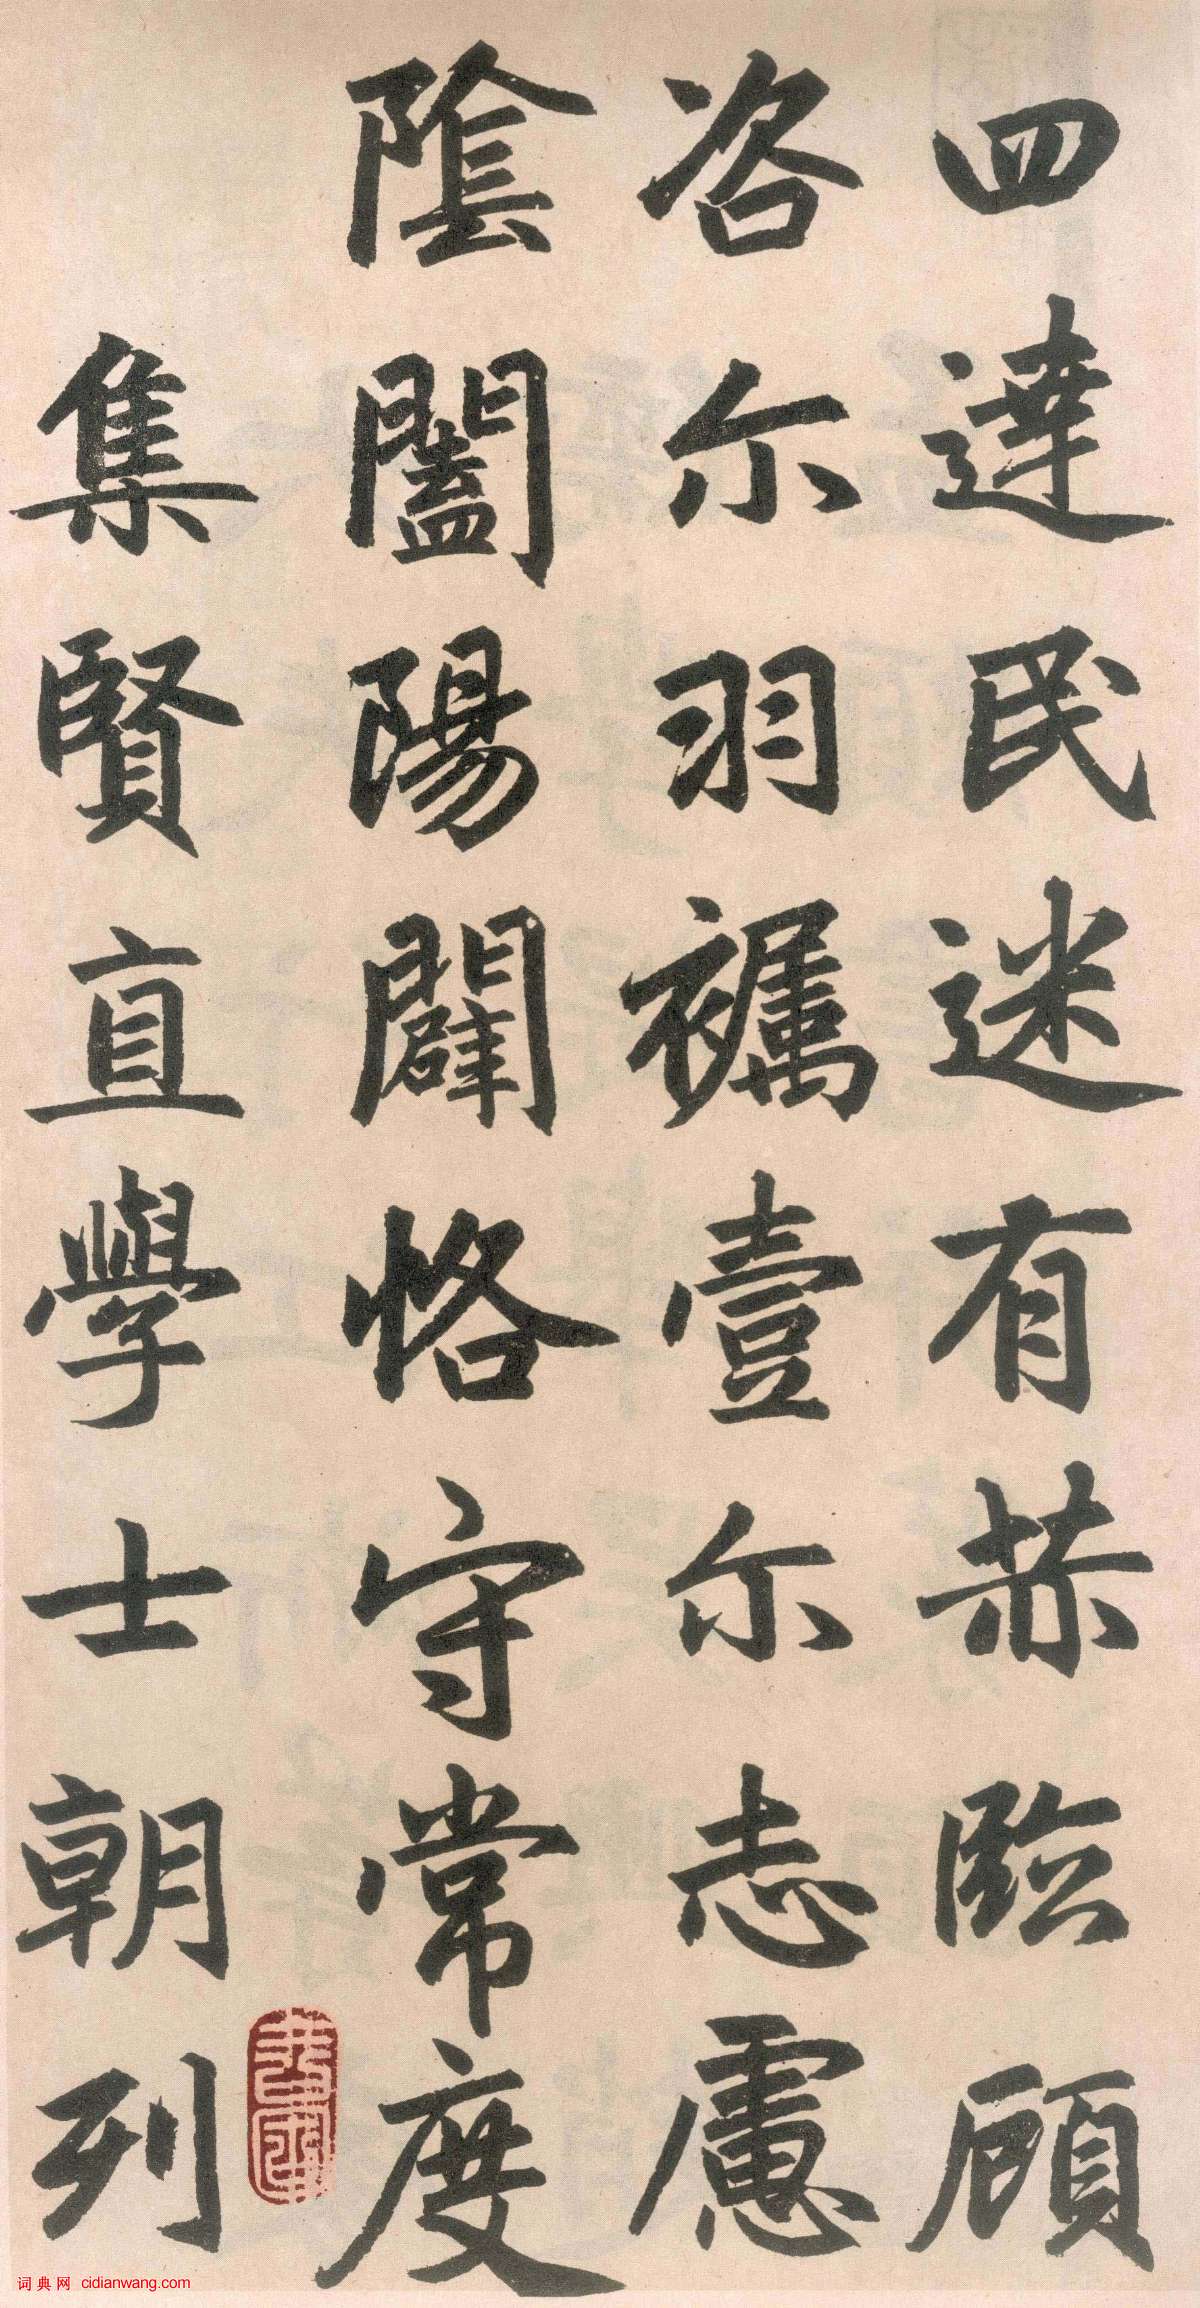 四達民迷有赫臨顧
咨尔羽壹尔志慮
陰闔陽闢恪守常度
集賢直學士朝列
词典网 cidianwang.com